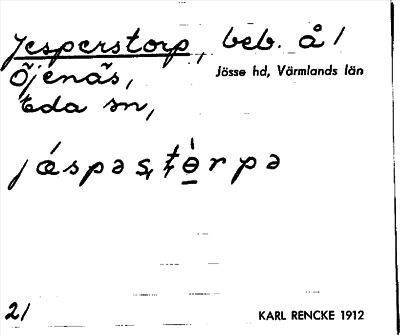 Jesperstorp, beb. å /
Öjenäs, Jösse hd, Värmlands län
Eda sn,
jáspəs̩ t̩ò̠rpə
21 KARL RENCKE 1912